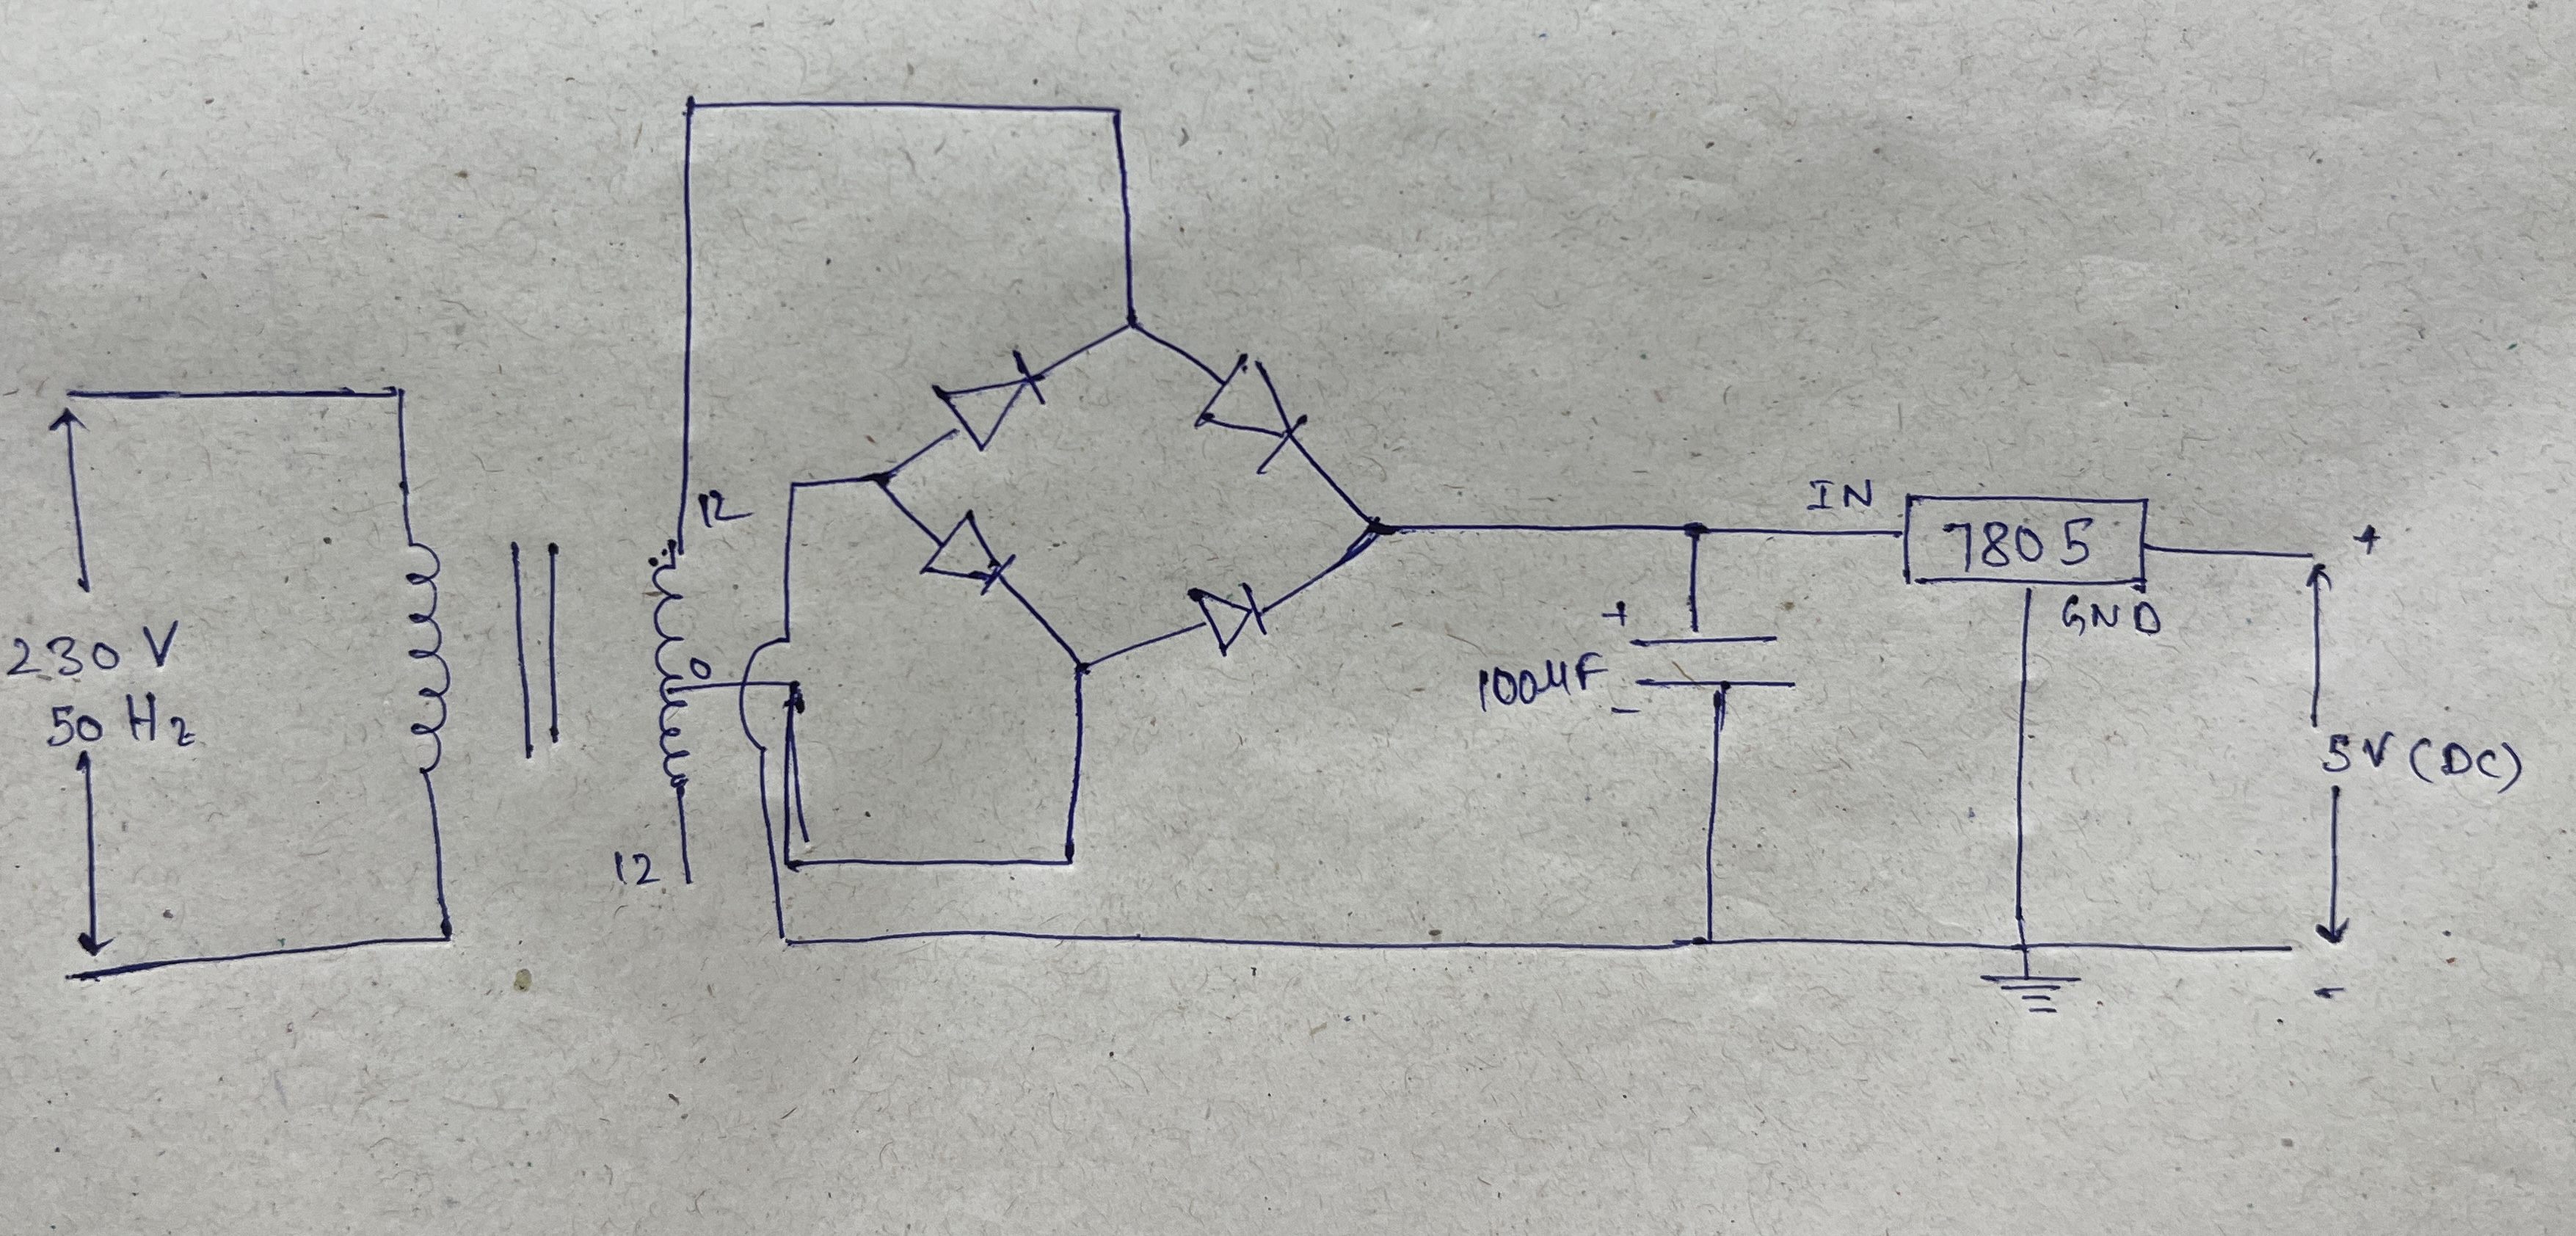 230 V
50 Hz
12
0
12
+
100µF
-
IN
7805
GND
+
5V (DC)
-